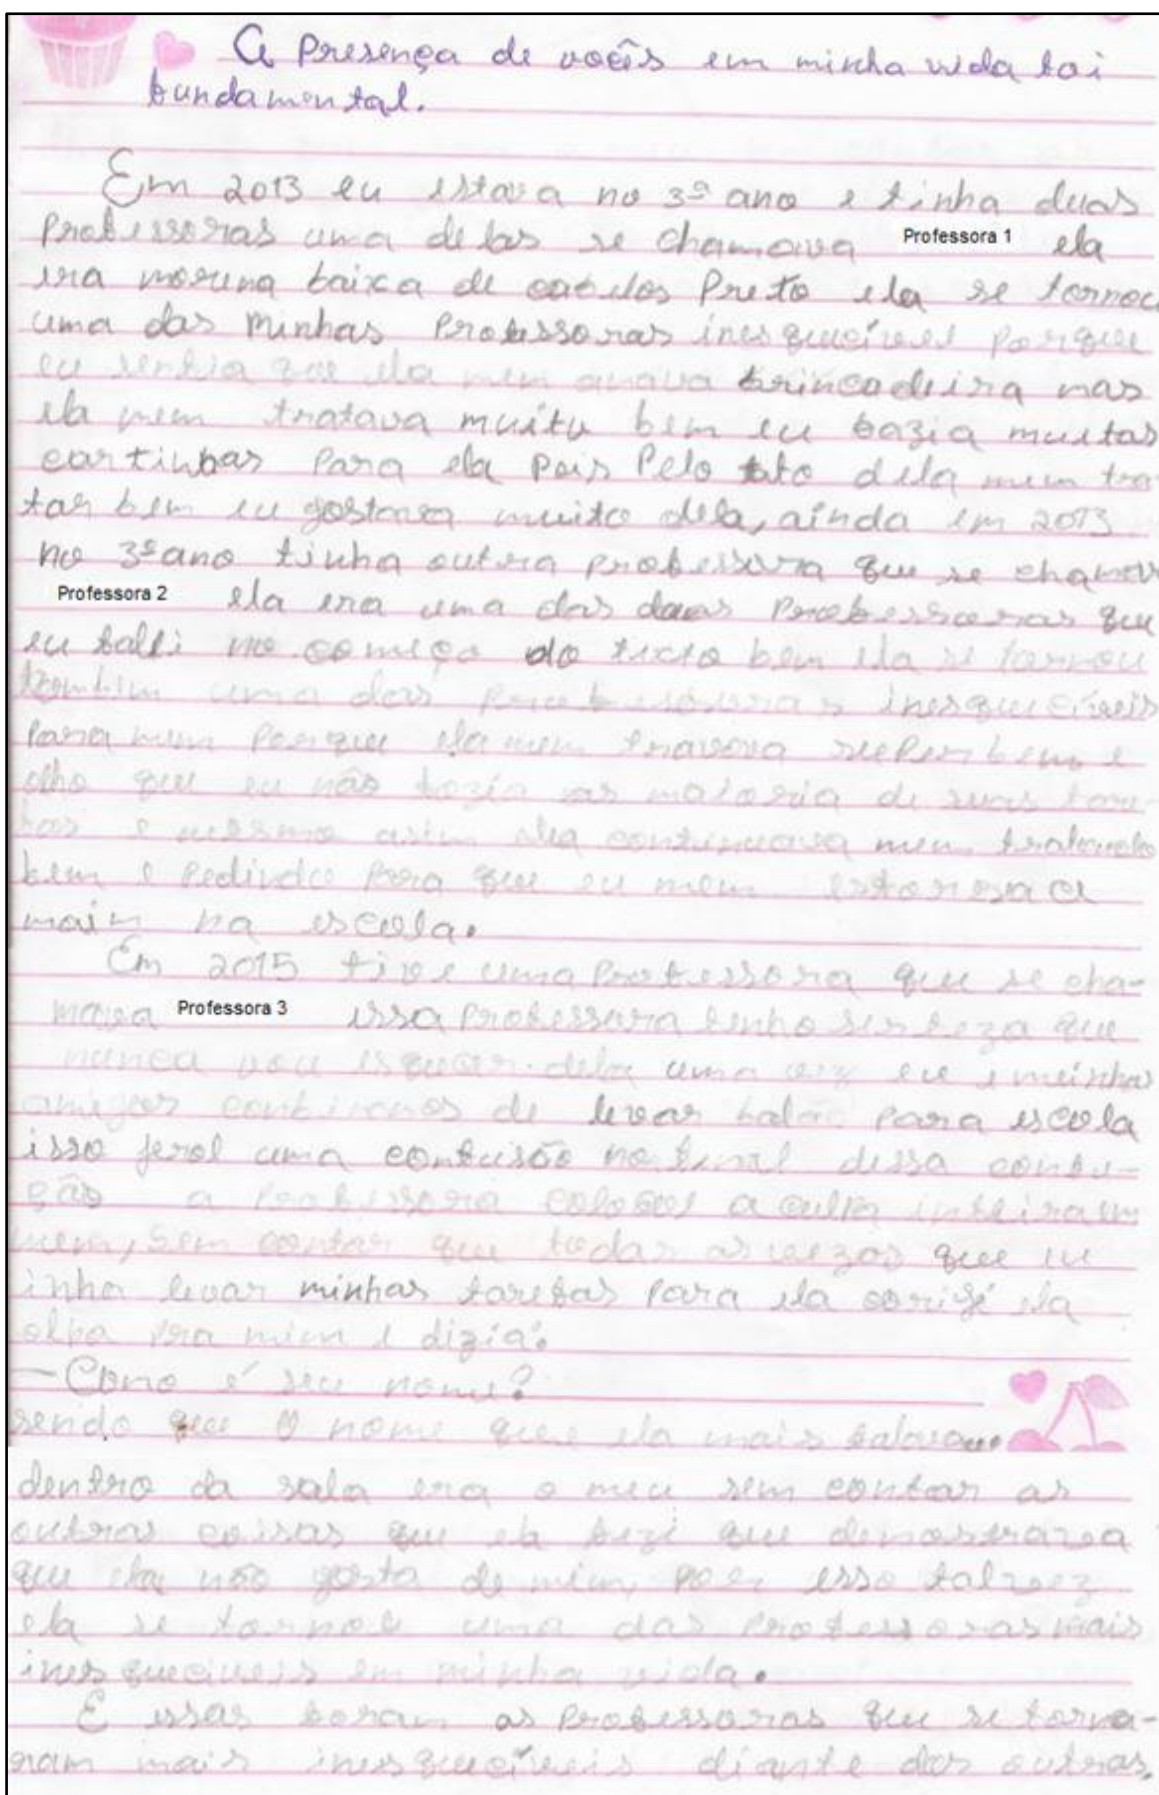 A Presença de vocês em minha vida foi
fundamental.
Em 2013 eu estava no 3º ano e tinha duas
Professoras uma delas se chamava Professora 1 ela
era morena baixa de cabelos Preto ela se tornou
uma das minhas Professoras inesqueciveel porque
eu sentia que ela mem amava brincadeira mas
ela mem tratava muito bem eu fazia muitas
cartinhas Para ela Pois Pelo fato dela mem tra-
tar bem eu gostava muito dela, ainda em 2013
no 3º ano tinha outra professora que se chamav
Professora 2 ela era uma das duas Professoras que
eu falei no começo do texto bem ela se tornou
tambem uma das professoras inesqueciveis
Para mim Porque ela mem travava super bem e
olho que eu não fazia as maioria de suas tare-
fas e mesmo asim ela continuava mem tratando
bem e Pedindo Para que eu mem
mais na escola.
Em 2015 tive uma Professora que se cha-
mava Professora 3 essa Professora tenho serteza que
nunca vou dela uma vez eu e meinhas
amigas de levar balão Para escola
isso uma confusão no final dessa confu-
ção a Professora a culpa inteira em
mem, sem contar que todas as vezos que eu
inha levar minhas tarefas Para ela ela
olha Pra mim e dizia:
—Como é seu nome?
sendo que o nome que ela mais falava
dentro da sala era o meu sem contar as
outras coisas que ela que
que ela não gosta de mim, por isso talvez
ela se uma das Professoras mais
inesqueciveis em minha vida.
E essas foram as Professoras que se torna-
ram mais inesqueciveis diante das outras.